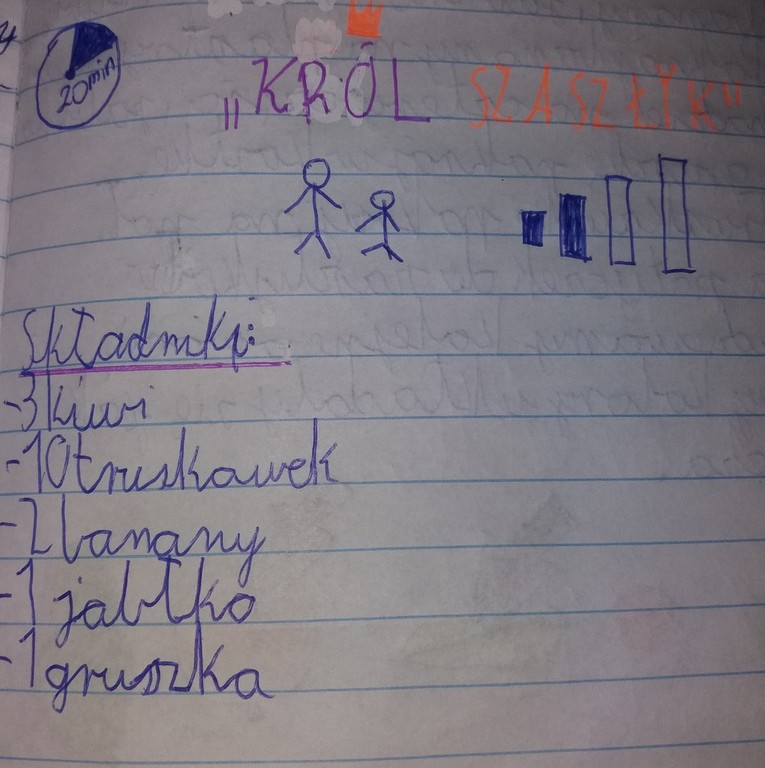 20min
„KRÓL SZASZŁYK"
Składniki:
-3 kiwi
-10 truskawek
-2 banany
-1 jabłko
-1 gruszka